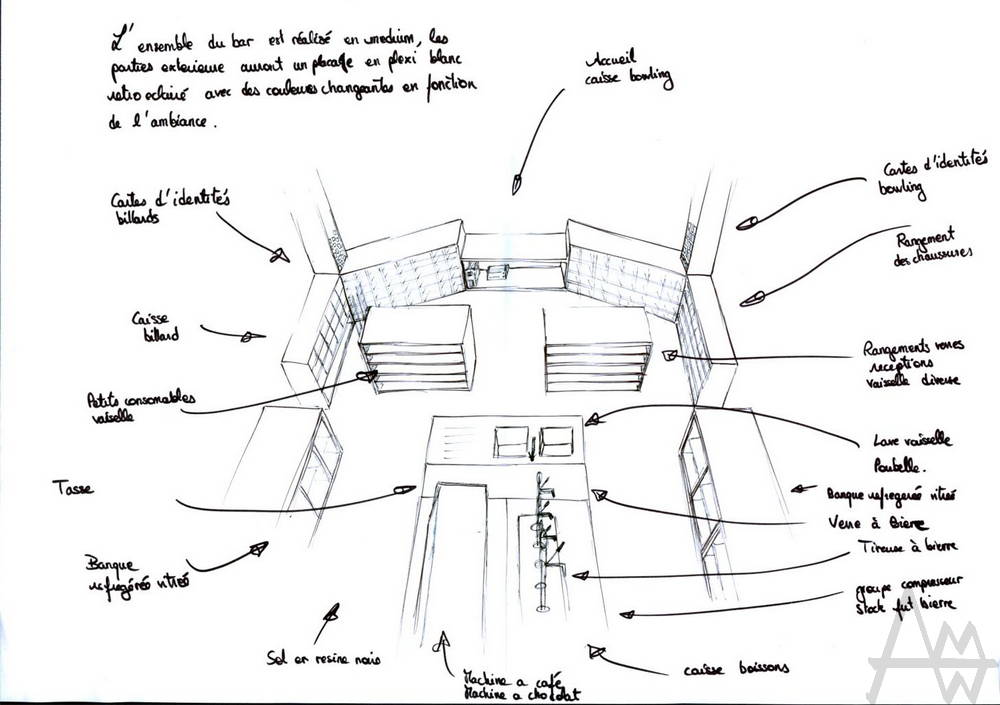 L'ensemble du bar est réalisé en medium, les
parties exterieure auront un placage en plexi blanc
retro eclairé avec des couleurs changeantes en fonction
de l'ambiance.
Accueil
caisse bowling
Cartes d'identités
billards
Cartes d'identités
bowling
Rangement
des chaussures
Caisse
billard
Rangements verres
receptions
vaisselle diverse
Petits consomables
vaiselle
Lave vaisselle
Poubelle.
Tasse
Banque refregerée vitreé
Verre à Bierre
Tireuse à bierre
Banque
refregérée vitreé
groupe compresseur
Stock fut bierre
Sol en resine noir
caisse boissons
Machine a café
Machine a chocolat
AMW